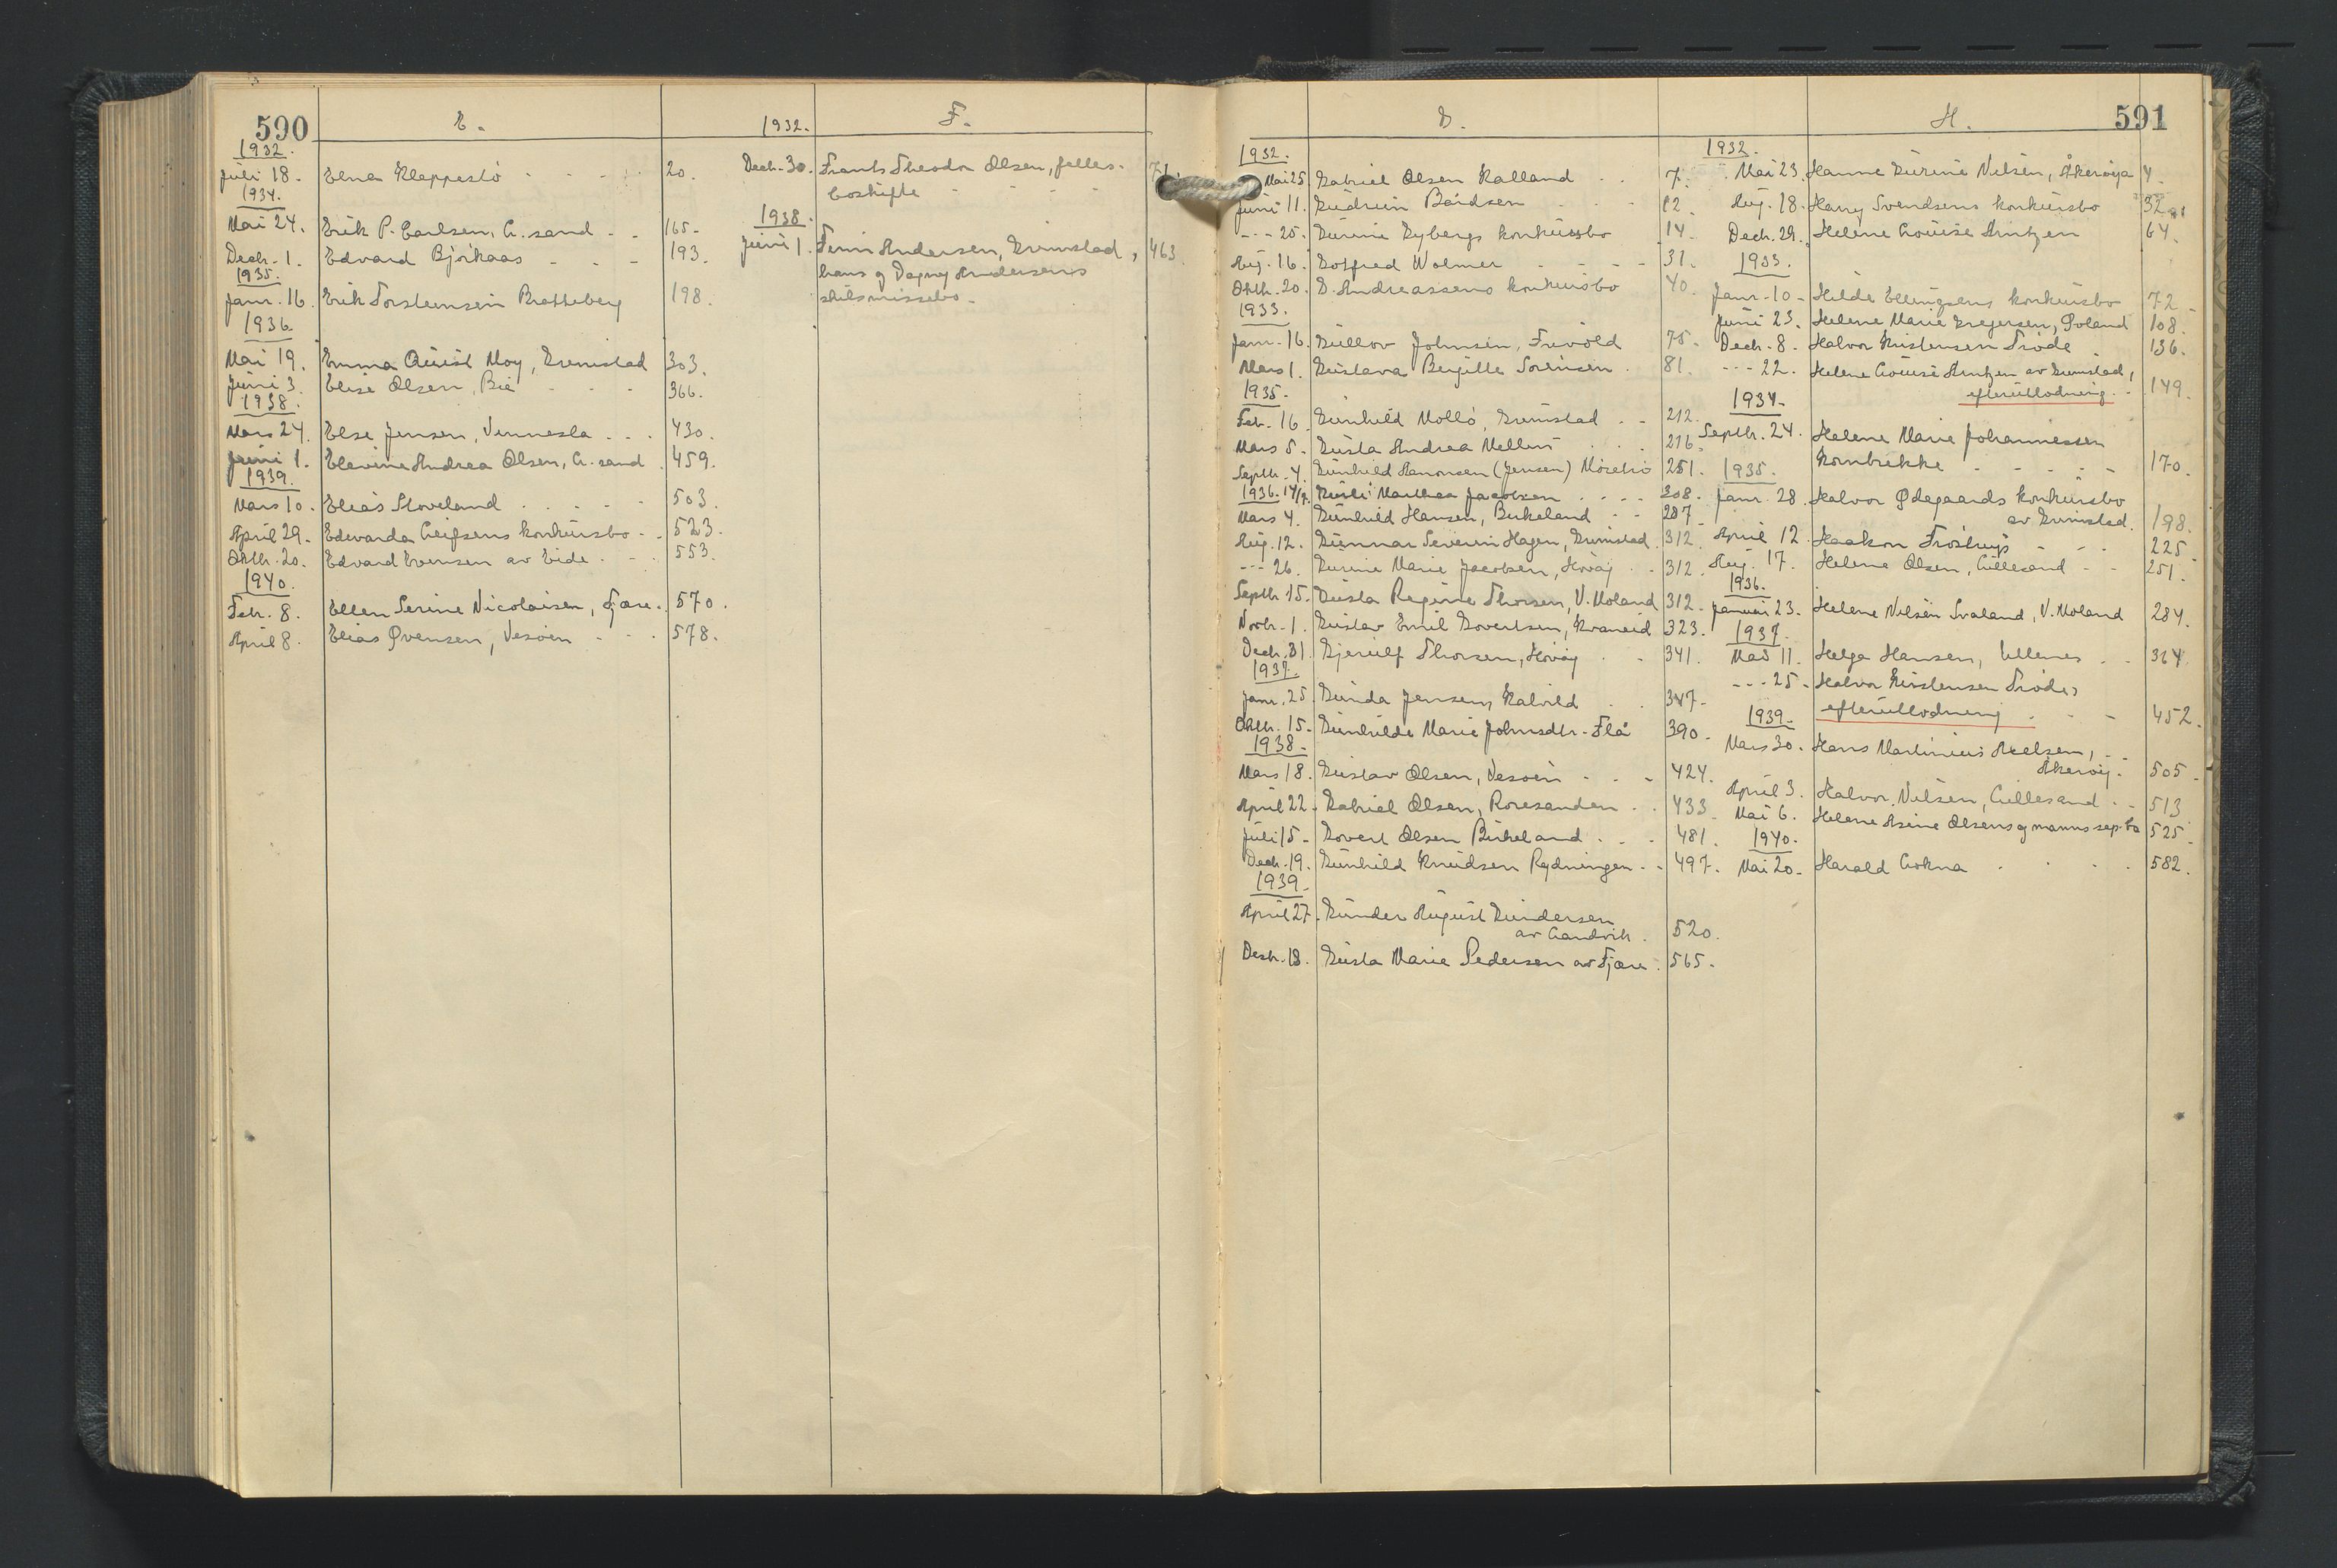 590
E.
1932.
Juli 18. Elna Kleppestø - - - - 20.
1934.
Mai 24. Erik P. Carlsen, L.sand - - 165.
Decb. 1. Edvard Bjørkaas - - - 193.
1935.
Janr. 16. Erik Torstensen Bratteberg 198.
1936.
Mai 19. Emma Qvist Moy, Grimstad 303.
Juni 3. Elise Olsen, Bie - - - 366.
1938.
Mars 24. Else Jensen, Vennesla - - - 430.
Juni 1. Elevine Andrea Olsen, L.sand. 459.
1939.
Mars 10. Elias Stoveland - - - - 503.
April 29. Edvarda Leifsens konkursbo - - 523.
Oktb. 20. Edvard Evensen av Eide - - - 553.
1940.
Febr. 8. Ellen Serine Nicolaisen, Fjære. 570.
April 8. Elias Øvensen, Vesøen - - - 578.
F.
1932.
Decb. 30. Frants Theodor Olsen, felles- 71.
boskifte
1938.
Juni 1. Finn Andersen, Grimstad, 463.
hans og Dagny Andersens
skilsmissebo.
591
G.
1932.
Mai 25 Gabriel Olsen Kalland - - 7.
Juni 11. Gudrun Bårdsen - - - 12.
- - - 25. Gurine Nybergs konkursbo 14.
Aug. 16. Gotfred Wolmer - - - - 31.
Oktb. 20. G. Andreassens konkursbo 40.
1933.
Janr. 16. Gullov Johnsen, Frivold 75.
Mars 1. Gustava Bergitte Sørensen. 81.
1935.
Feb. 16. Gunhild Mollø, Grimstad - - 212.
Mars 5. Gusta Andrea Mellum - - 216.
Septb. 4. Gunhild Hanonsen (Jensen) Moretrø 251.
1936. 14/7. Gusti Marthea Jacobsen - - - - 308.
Mars 4. Gunhild Hansen, Birkeland - - 287.
Aug. 12. Gunnar Severin Hagen, Grimstad. 312.
- - - 26. Gurine Marie Jacobsen, Høvåg - - 312.
Septb 15. Gusta Regine Thorsen, V. Moland 312.
Novbr. 1. Gustav Emil Govertsen, Kvaneid 323.
Decb. 31. Gjerulf Thorsen, Høvåg - - 341.
1937.
Janr. 25. Gunda Jensen, Kalvild - - 347.
Oktb. 15. Gunhilde Marie Johnsdtr. Flå 390.
1938.
Mars 18. Gustav Olsen, Vesøen - - - 424.
April 22. Gabriel Olsen, Roresanden - - 433.
Juli 15. Govert Olsen Birkeland - - - 481.
Decb. 19. Gunhild Knudsen Rydningen - - 497.
1939.
April 27. Gunder August Gundersen
av Landvik. 520.
Desb. 18. Gusta Marie Pedersen av Fjære. 565.
H.
1932.
Mai 23. Hanne Gurine Nilsen, Åkerøya 4.
Aug. 18. Harry Svendsens konkursbo 32.
Decb. 29. Helene Louise Arntzen 64.
1933.
Janr. 10. Hilda Ellingsens konkursbo 72.
Juni 23. Helene Marie Gregersen, Øvland 108.
Decb. 8. Halvor Kristensen Trøde 136.
- - - 22. Helene Louise Arntzen av Grimstad,
efterutlodning. - 149.
1934.
Septb. 24. Helene Marie Johannessen
Kornbrekke - - - - 170.
1935.
Janr. 28. Halvor Ødegaards konkursbo
av Grimstad. 198.
April 12. Haakon Frøstrup - - - 225.
Aug. 17. Helene Olsen, Lillesand - - 251.
1936.
Januar 23. Helene Nilsen Svaland, V. Moland 284.
1937.
Mars 11. Helga Hansen, Ullenes - - 364.
- - - 25. Halvor Kristensen Trødes
efterutlodning - - - 452.
1939.
Mars 30. Hans Martinius Axelsen,
Åkerøy. 505.
April 3. Halvor Nilsen, Lillesand - - 513.
Mai 6. Helene Asine Olsens og manns sep. bo 525.
1940.
Mai 20. Harald Lohna - - - - 582.